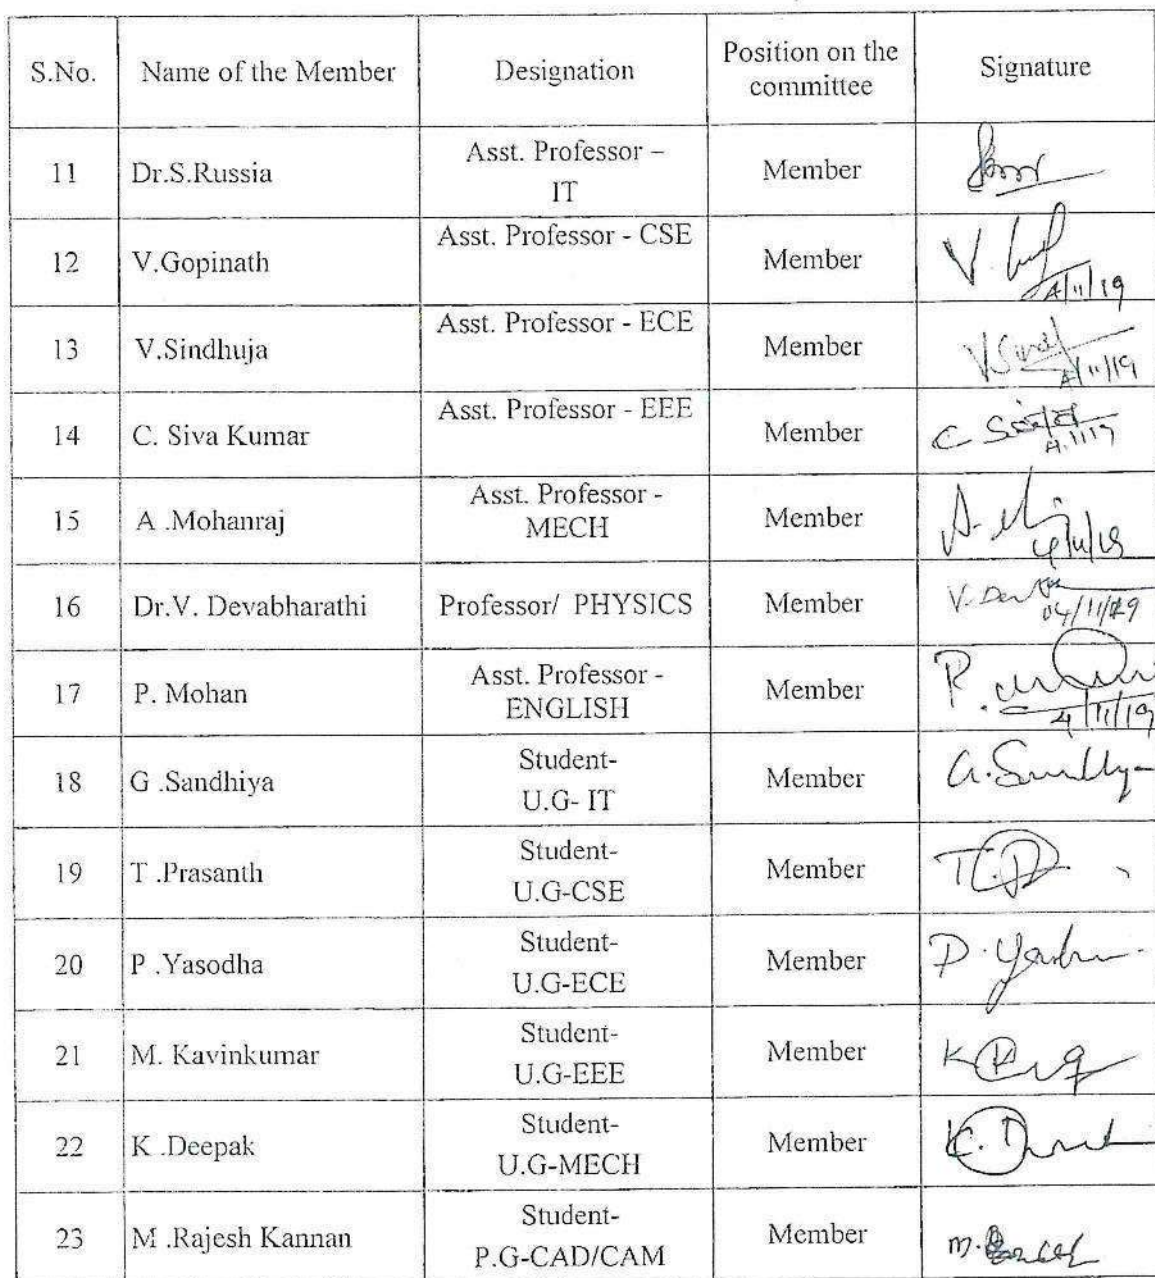 S.No. Name of the Member Designation Position on the committee Signature
11 Dr.S.Russia Asst. Professor – IT Member
12 V.Gopinath Asst. Professor - CSE Member V 4/11/19
13 V.Sindhuja Asst. Professor - ECE Member V Sind 4/11/19
14 C. Siva Kumar Asst. Professor - EEE Member C
15 A .Mohanraj Asst. Professor - MECH Member A. 4/11/19
16 Dr.V. Devabharathi Professor/ PHYSICS Member V. Dev 04/11/19
17 P. Mohan Asst. Professor - ENGLISH Member P. 4/11/19
18 G .Sandhiya Student- U.G- IT Member G.
19 T .Prasanth Student- U.G-CSE Member T.P
20 P .Yasodha Student- U.G-ECE Member P.
21 M. Kavinkumar Student- U.G-EEE Member K
22 K .Deepak Student- U.G-MECH Member K.
23 M .Rajesh Kannan Student- P.G-CAD/CAM Member M.